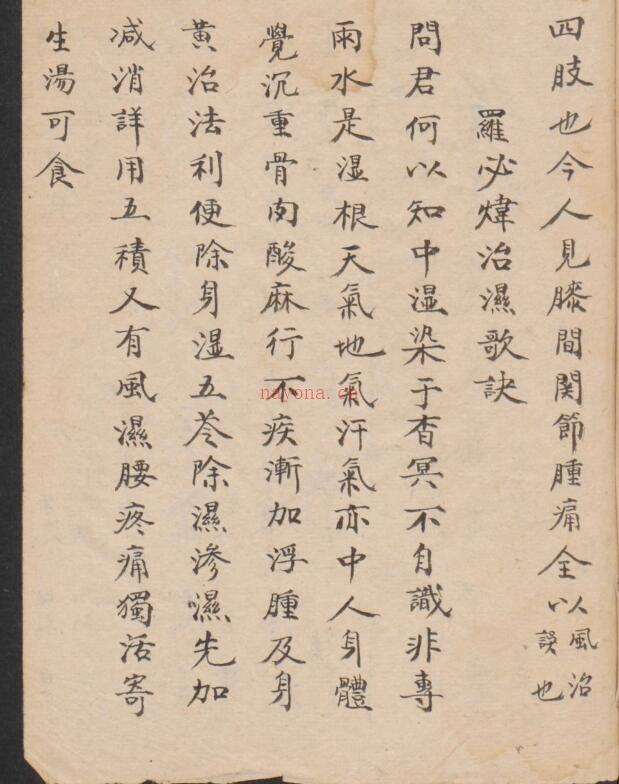 四肢也今人見膝間関節腫痛全以風治誤也
羅必煒治濕歌訣
問君何以知中湿染于杳冥不自識非專
雨水是湿根天氣地氣汗氣亦中人身體
覺沉重骨肉酸麻行不疾漸加浮腫及身
黃治法利便除身湿五苓除濕滲濕先加
减消詳用五積又有風濕腰疼痛獨活寄
生湯可食
nayona.cn